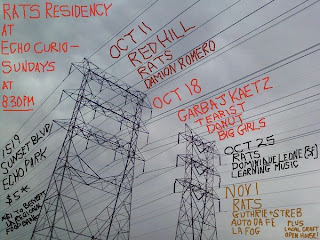 RATS RESIDENCY
AT
ECHO CURIO –
SUNDAYS
AT
8:30PM
1519
SUNSET BLVD
ECHO PARK
$5*
OCT 11
RED HILL
RATS
DAMION ROMERO
OCT 18
GARBAJ KAETZ
TEARIST
DONUT
BIG GIRLS
OCT 25
RATS
DOMINIQUE LEONE (SF)
LEARNING MUSIC
NOV 1
RATS
GUTHRIE & STREB
AUTO DA FÉ
LA FOG
PLUS
LOCAL CRAFT
OPEN HOUSE!